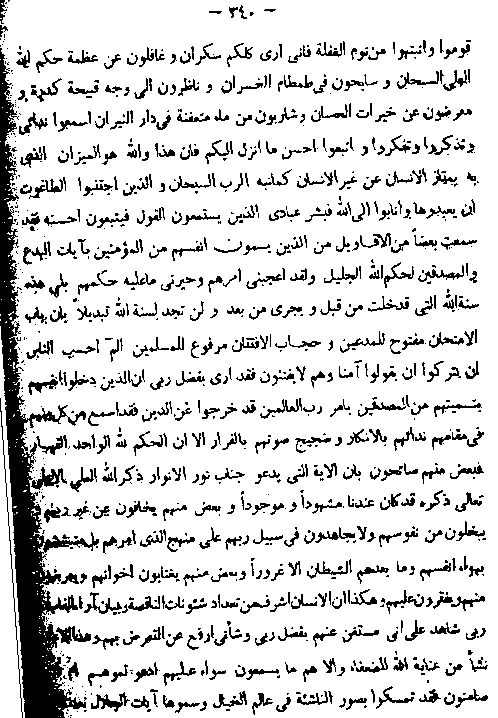 - ٣٤٠ -
قوموا وانبتهوا من نوم الغفلة فانى ارى كلكم سكران و غافلون عن عظمة حكم الله
العلى السبحان و سابحون فى طمطام الخسران و ناظرون الى وجه قبيحة كدرة و
معرضون عن خيرات الحسان وشاربون من ماء متعفنة فى دار النيران اسمعوا ندائى
وتذكروا وتفكروا و اتبعوا احسن ما انزل اليكم فان هذا والله هو الميزان الذى
به يمتاز الانسان عن غير الانسان كما نبه الرب السبحان و الذين اجتنبوا الطاغوت
ان يعبدوها وانابوا الى الله فبشر عبادى الذين يستمعون القول فيتبعون احسنه فقد
سمعت بعضاً من الاقاويل من الذين يسمون انفسهم من المؤمنين بآيات البدع
و المصدقين لحكم الله الجليل ولقد اعجبنى امرهم وحيرنى ماعليه حكمهم بلى هذه
سنة الله التى قد خلت من قبل و يجرى من بعد و لن تجد لسنة الله تبديلاً بان باب
الامتحان مفتوح للمدعين و حجاب الافتتان مرفوع للمسلمين الم احسب الناس
ان يتركوا ان يقولوا آمنا وهم لا يفتنون فقد ارى بفضل ربى ان الذين دخلوا انفسهم
بتسميتهم من المصدقين بامر رب العالمين قد خرجوا عن الدين فقد اسمع من كل
فى مقامهم ندائهم بالانكار و ضجيج صوتهم بالفرار الا ان الحكم لله الواحد القهار
فبعض منهم صائحون بان الاية التى يدعو جناب نور الانوار ذكر الله العلى
تعالى ذكره قد كان عندنا مشهوداً و موجوداً و بعض منهم يخافون عن غير ربهم و
يبخلون من نفوسهم ولا يجاهدون فى سبيل ربهم على منهج الذى امرهم بل
بهواء انفسهم وما يعدهم الشيطان الا غروراً وبعض منهم يغتابون اخوانهم و
منهم ويفترون عليهم و هكذا ان الانسان اشرف عن تعداد شئونات الناقصة وبيان
ربى شاهد على انى مستغن عنهم بفضل ربى و شأنى ارفع عن التعرض بهم
نشأ من عناية الله للضعفاء والا هم ما يسمعون سواء عليهم ادعوتموهم ام
صامتون فقد تمسكوا بصور الناشئة فى عالم الخيال و سموها آيات الجلال